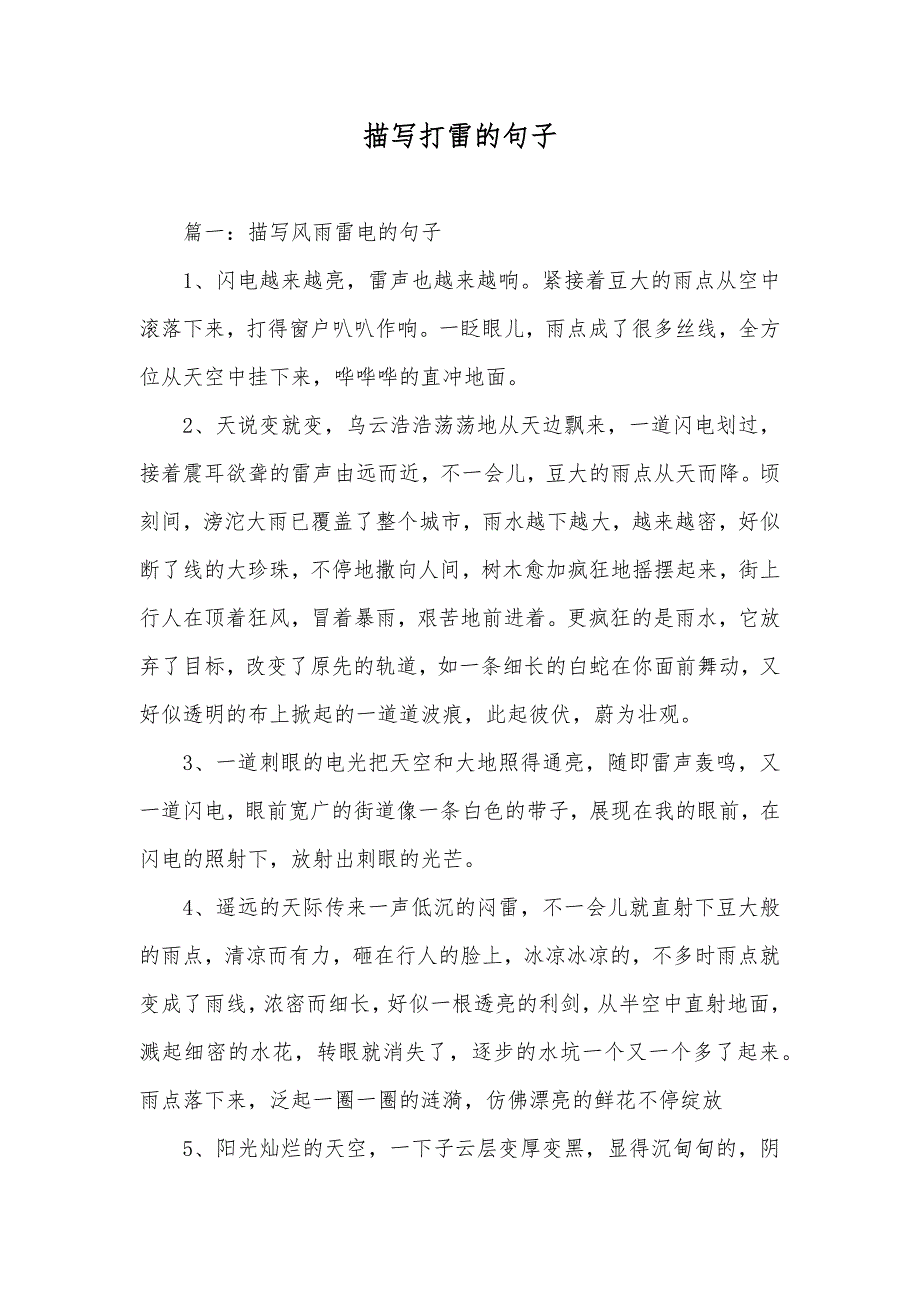 描写打雷的句子
篇一：描写风雨雷电的句子
1、闪电越来越亮，雷声也越来越响。紧接着豆大的雨点从空中
滚落下来，打得窗户叭叭作响。一眨眼儿，雨点成了很多丝线，全方
位从天空中挂下来，哗哗哗的直冲地面。
2、天说变就变，乌云浩浩荡荡地从天边飘来，一道闪电划过，
接着震耳欲聋的雷声由远而近，不一会儿，豆大的雨点从天而降。顷
刻间，滂沱大雨已覆盖了整个城市，雨水越下越大，越来越密，好似
断了线的大珍珠，不停地撒向人间，树木愈加疯狂地摇摆起来，街上
行人在顶着狂风，冒着暴雨，艰苦地前进着。更疯狂的是雨水，它放
弃了目标，改变了原先的轨道，如一条细长的白蛇在你面前舞动，又
好似透明的布上掀起的一道道波痕，此起彼伏，蔚为壮观。
3、一道刺眼的电光把天空和大地照得通亮，随即雷声轰鸣，又
一道闪电，眼前宽广的街道像一条白色的带子，展现在我的眼前，在
闪电的照射下，放射出刺眼的光芒。
4、遥远的天际传来一声低沉的闷雷，不一会儿就直射下豆大般
的雨点，清凉而有力，砸在行人的脸上，冰凉冰凉的，不多时雨点就
变成了雨线，浓密而细长，好似一根透亮的利剑，从半空中直射地面，
溅起细密的水花，转眼就消失了，逐步的水坑一个又一个多了起来。
雨点落下来，泛起一圈一圈的涟漪，仿佛漂亮的鲜花不停绽放
5、阳光灿烂的天空，一下子云层变厚变黑，显得沉甸甸的，阴